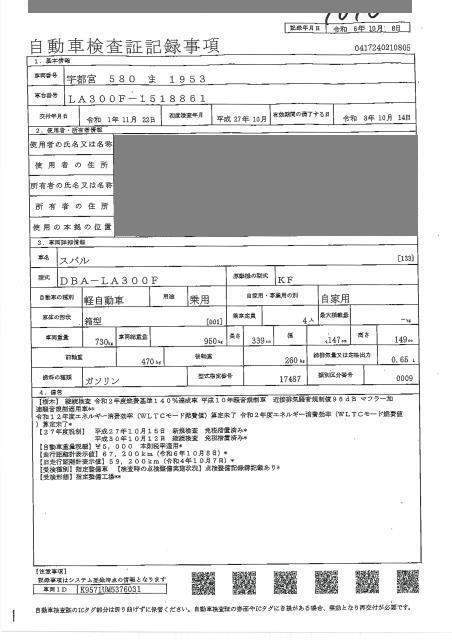 記録年月日 令和 6年10月 8日
自動車検査証記録事項
0417240210805
1. 基本情報
車両番号 宇都宮 580 ま 1953
車台番号 LA300F-1518861
交付年月日 令和 1年11月 22日 初度検査年月 平成 27年 10月 有効期間の満了する日 令和 8年 10月 14日
2. 使用者・所有者情報
使用者の氏名又は名称
使用者の住所
所有者の氏名又は名称
所有者の住所
使用の本拠の位置
3. 車両詳細情報
車名 スバル [133]
型式 DBA-LA300F 原動機の型式 KF
自動車の種別 軽自動車 用途 乗用 自家用・事業用の別 自家用
車体の形状 箱型 [001] 乗車定員 4人 最大積載量 -kg
車両重量 730kg 車両総重量 950kg 長さ 339cm 幅 147cm 高さ 149cm
前軸重 470kg 後軸重 260kg 総排気量又は定格出力 0.65 L
燃料の種類 ガソリン 型式指定番号 17487 類別区分番号 0009
4. 備考
[栃木] 継続検査 令和2年度燃費基準140%達成車 平成10年騒音規制車 近接排気騒音規制値96dB マフラー加
速騒音規制適用車**
令和12年度エネルギー消費効率(WLTCモード燃費値)算定未了 令和2年度エネルギー消費効率(WLTCモード燃費値
)算定未了*
[27年度税制] 平成27年10月15日 新規検査 免税措置済み*
平成30年10月12日 継続検査 免税措置済み*
[自動車重量税額]¥5,000 本則税率適用*
[走行距離計表示値]67,200km(令和6年10月8日)*
[旧走行距離計表示値]59,200km(令和4年10月7日)*
[受検種別]指定整備車 [検査時の点検整備実施状況]点検整備記録簿記載あり*
[受検形態]指定整備工場**
[注意事項]
記録事項はシステム登録時点の情報となります
車両ID K957IUM5376031
自動車検査証のICタグ部分は折り曲げずに保管ください。自動車検査証の券面やICタグにき損がある場合、無効となり再交付が必要です。